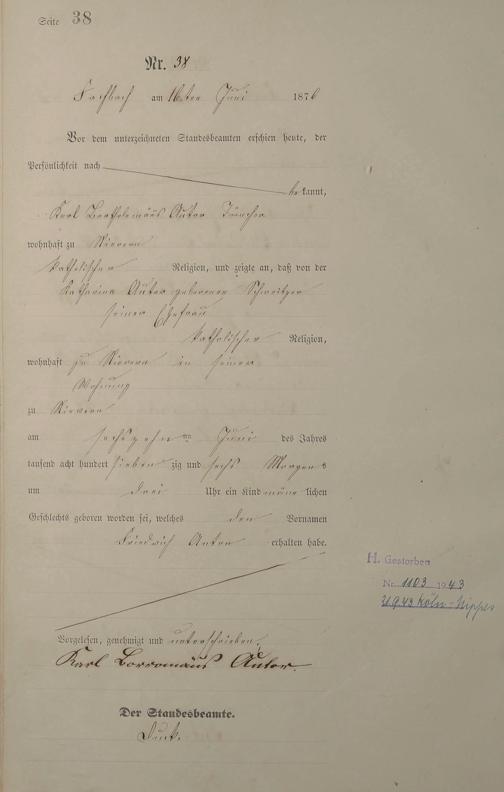 Seite 38
Nr. 38
Fachbach am 16ten Juni 1876
Vor dem unterzeichneten Standesbeamten erschien heute, der
Persönlichkeit nach
bekannt,
Karl Autor Tüncher
wohnhaft zu Nievern
katholischer Religion, und zeigte an, daß von der
Katharina Autor geborenen Schweitzer
seiner Ehefrau
katholischer Religion,
wohnhaft zu Nievern in seiner
Wohnung
zu Nievern
am sechszehnten Juni des Jahres
tausend acht hundert siebenzig und sechs Morgens
um drei Uhr ein Kind männlichen
Geschlechts geboren worden sei, welches den Vornamen
Friedrich Anton erhalten habe.
H. Gestorben
Nr. 1103 1943
Köln-Nippes
Vorgelesen, genehmigt und unterschrieben.
Karl Borromäus Autor.
Der Standesbeamte.